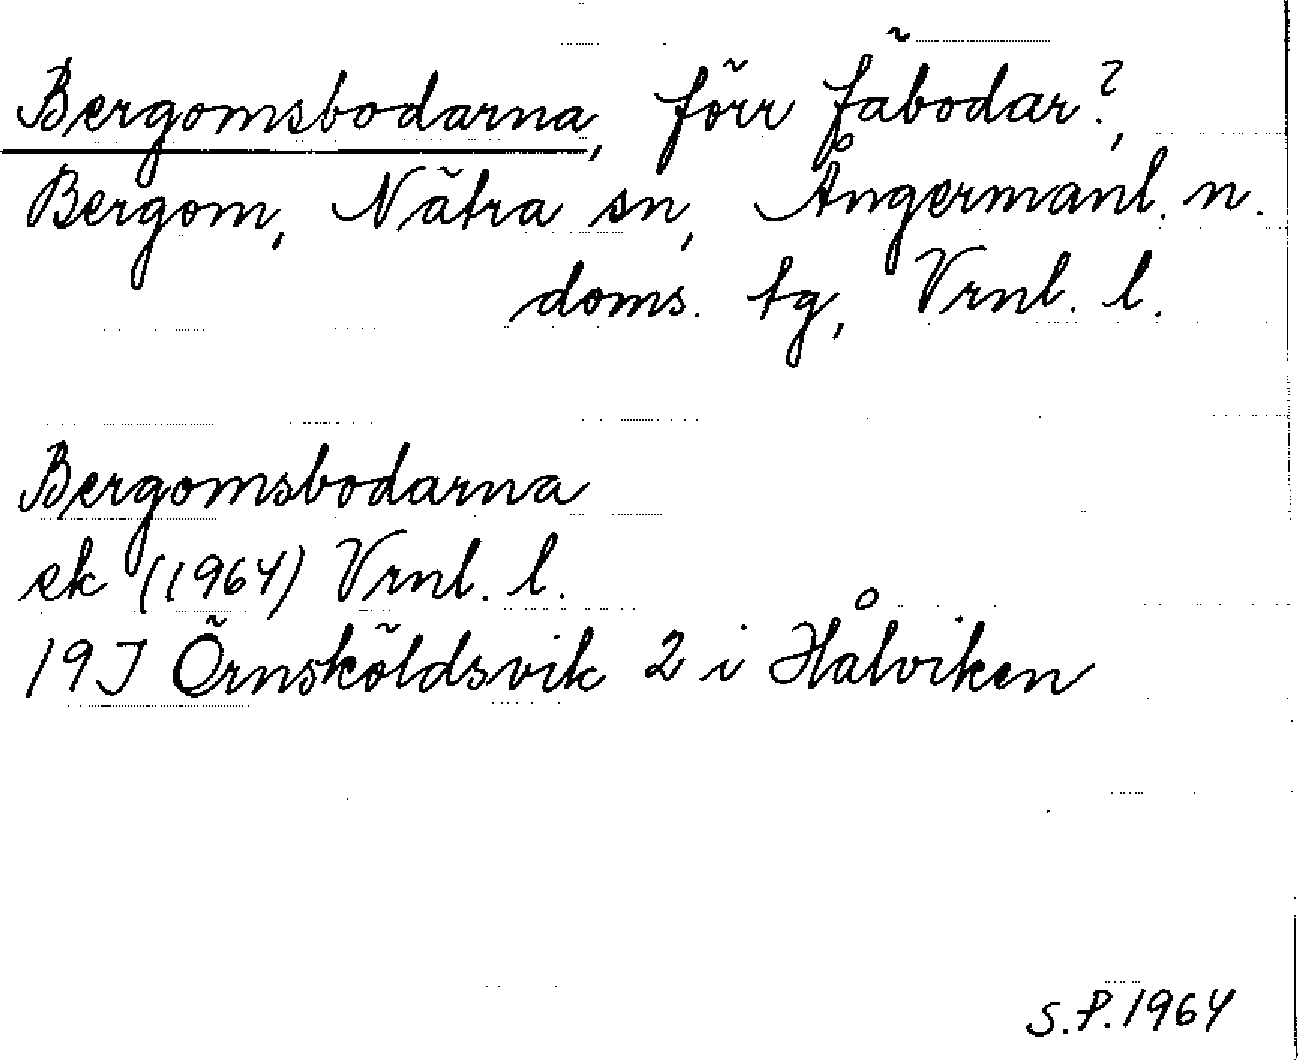 Bergomsbodarna, förr fäbodar?,
Bergom, Nätra sn, Ångermanl. n.
doms. tg, Vrnl. l.
Bergomsbodarna
ek (1964) Vrnl. l.
19J Örnsköldsvik 2 i Hålviken
S.P. 1964